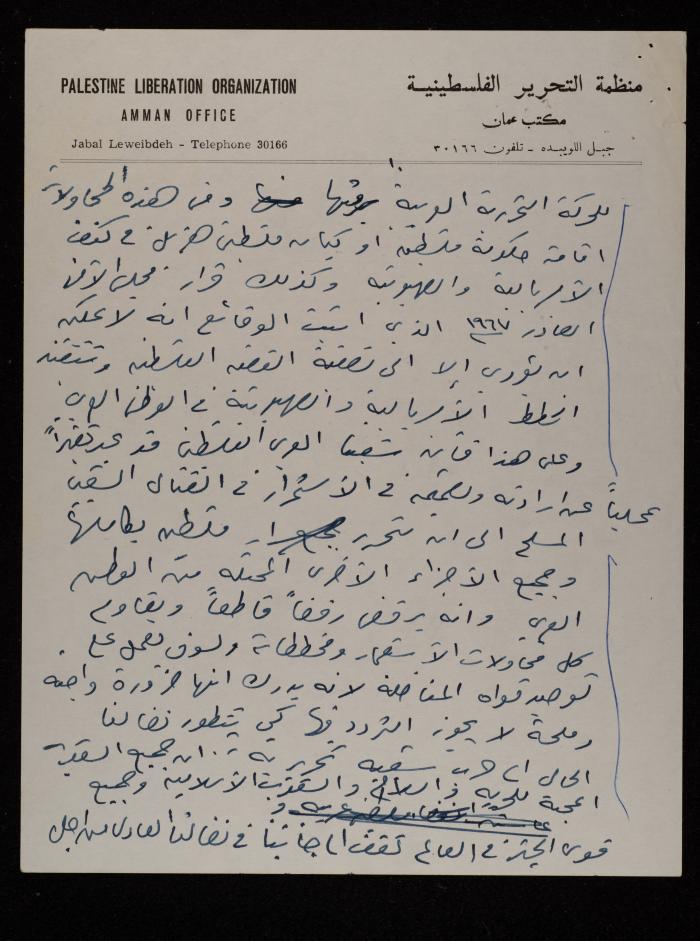 PALESTINE LIBERATION ORGANIZATION
AMMAN OFFICE
Jabal Leweibdeh - Telephone 30166
منظمة التحرير الفلسطينية
مكتب عمان
جبل اللويبده - تلفون ٣٠١٦٦
للحركة التحررية العربية برمتها ومن هذه المحاولات
اقامة حكومة فلسطينية او كيان فلسطيني هزيل في كنف
الأمبريالية والصهيونية وكذلك قرار مجلس الأمن
الصادر ١٩٦٧ الذي اثبتت الوقائع انه لا يمكن
ان يؤدي إلا الى تصفية القضية الفلسطينية وتنفيذ
الخطط الأمبريالية والصهيونية في الوطن العربي
وعلى هذا فان شعبنا العربي الفلسطيني قد عبر تعبيراً
عملياً عن ارادته وتصميمه في الأستمرار في القتال الشعبي
المسلح الى ان تتحرر فلسطين بكاملها
وجميع الأجزاء الأخرى المحتلة من الوطن
العربي وانه يرفض رفضاً قاطعاً ويقاوم
كل محاولات الأستعمار ومخططاته ولسوف يعمل على
توحيد قواه المناضلة لأنه يدرك انها ضرورة واجبة
وملحة لا يجوز التردد فيها كي يتطور نضالنا
الحالي الى حرب شعبية تحريرية. ان جميع الشعوب
المحبة للحرية والسلام والشعوب الأسلامية وجميع
قوى الخير في العالم تقف الى جانبنا في نضالنا العادل من اجل